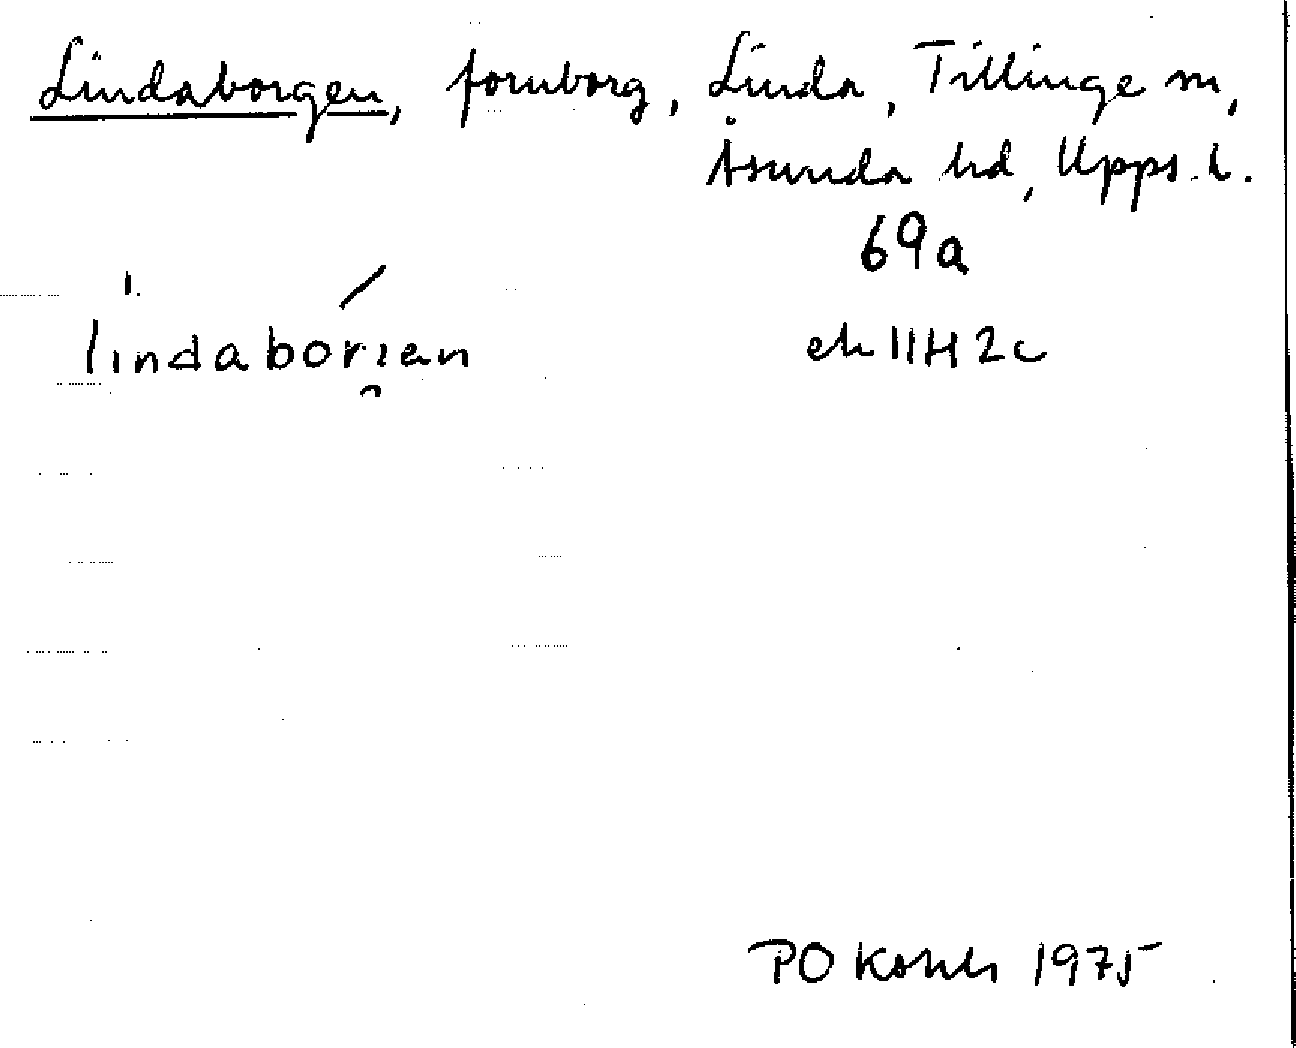 Lindaborgen, fornborg, Linda, Tillinge sn,
Åsunda hd, Upps. l.
69a
lindaborian
ek 11H 2c
PO 1975